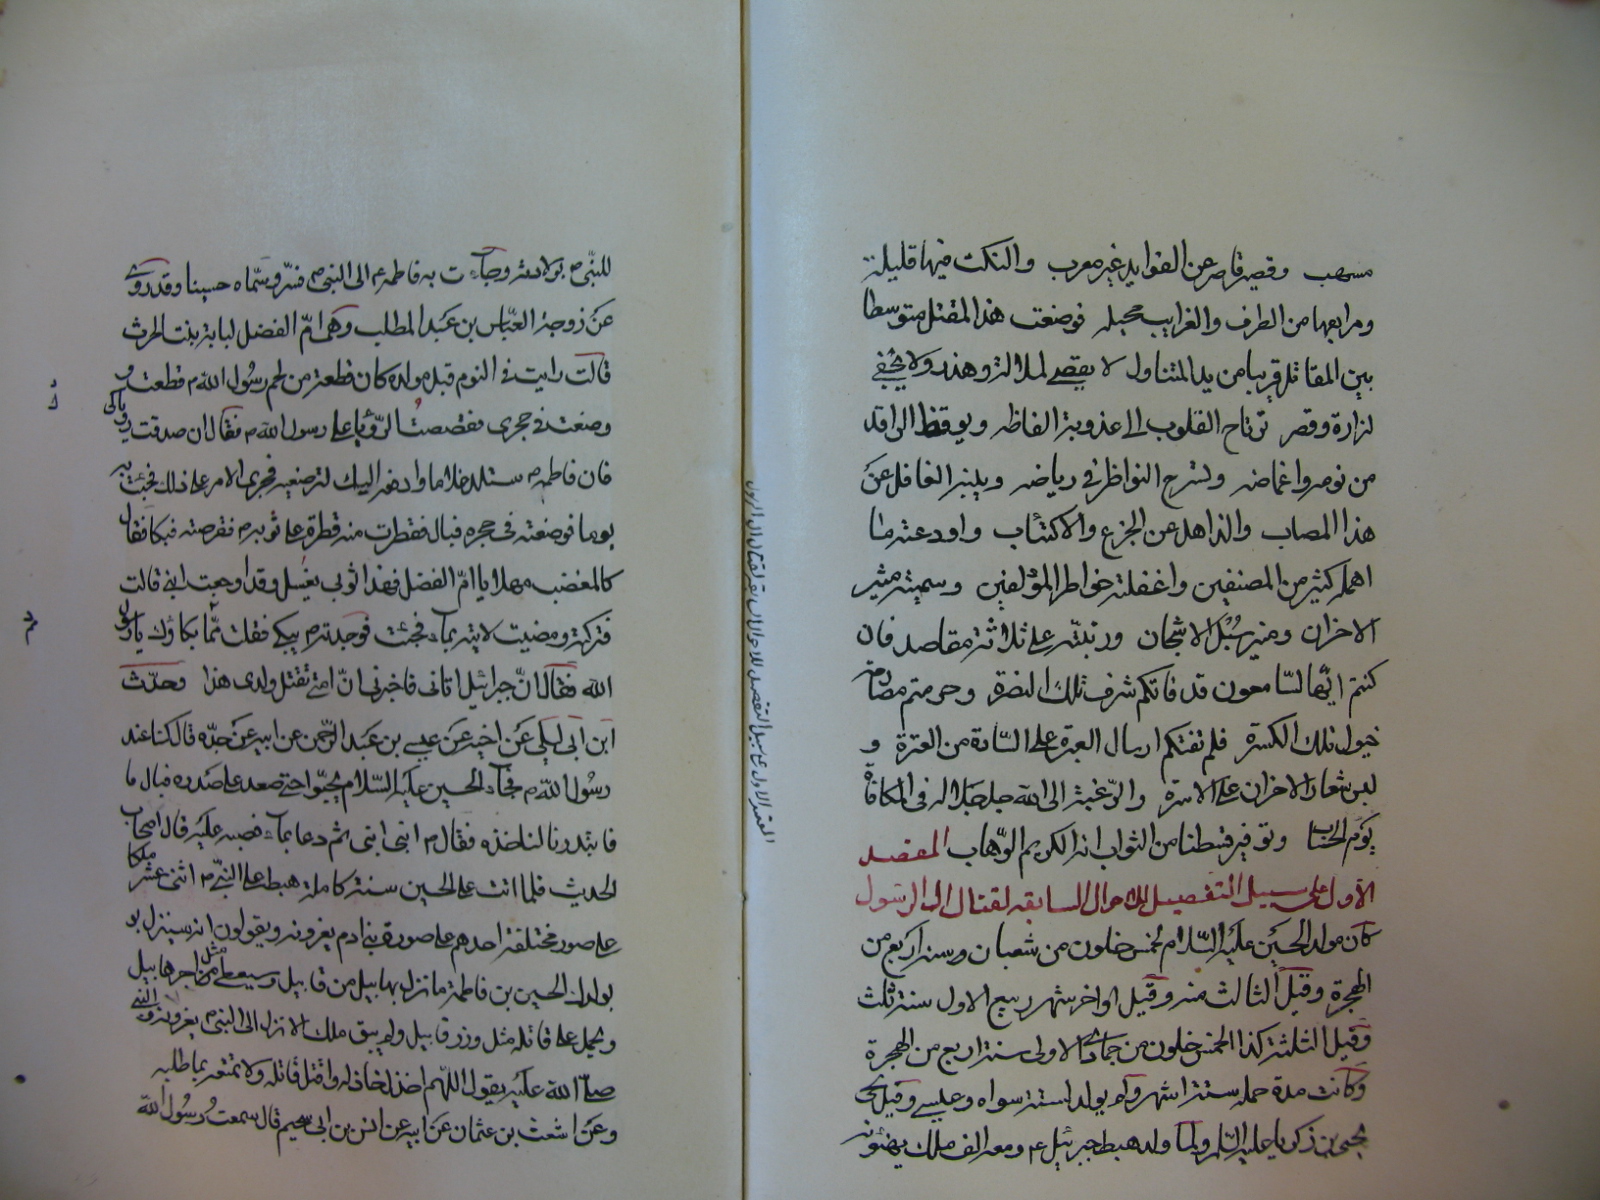 مسهب وقصير قاصر عن الفوايد غير معرب والنكت فيها قليلة
ومرابعها من الطرف والغرايب محيله فوضعت هذا المقتل متوسطا
بين المقاتل قريبا من يد المتناول لا يقصى لملالة وهذر ولا يجفى
لنزارة وقصر ترتاح القلوب الى عذوبة الفاظه ويوقظ الراقد
من نومه واغماضه وتسرح النواظر في رياضه وينبه الغافل عن
هذا المصاب والذاهل عن الجزع والاكتئاب واودعته ما
اهمله كثير من المصنفين واغفلته خواطر المؤلفين وسميته مثير
الاحزان ومنير سبل الاشجان ورتبته على ثلاثة مقاصد فان
كنتم ايها السامعون قد فاتكم شرف تلك النصرة وحرمتم مصادمة
خيول تلك الكسرة فلم تفتكم ارسال العبرة على السادة من العترة و
لبس شعار الاحزان على الاسرة والرغبة الى الله جل جلاله في المكافاة
يوم الحساب وتوفير قسطنا من الثواب انه الكريم الوهاب المقصد
الاول على سبيل التفصيل للاحوال السابقه لقتال ال الرسول
كان مولد الحسين عليه السلام لخمس خلون من شعبان وسنة اربع من
الهجرة وقيل الثالث منه وقيل اواخر شهر ربيع الاول سنة ثلث
وقيل الثلثة كذا لخمس خلون من جمادى الاولى سنة اربع من الهجرة
وكانت مدة حمله ستة اشهر ولم يولد لستة سواه وعيسى وقيل
يحيى بن زكريا عليه السلام ولما ولد هبط جبرئيل ع ومعه الف ملك يهنئون
للنبي م بولادته وجاءت به فاطمه ع الى النبي م فسر وسماه حسينا وقد روى
عن زوجة العباس بن عبد المطلب وهى ام الفضل لبابة بنت الحرث
قالت رايت في النوم قبل مولده كان قطعة من لحم رسول الله م قطعت و
وضعت في حجرى فقصصت الرؤيا على رسول الله م فقال ان صدقت رؤياكي
فان فاطمه م ستلد غلاما وادفعه اليك لترضعيه فجرى الامر على ذلك فجئت به
يوما فوضعته في حجره فبال فقطرت منه قطرة على ثوبه م فقرصته فبكا فقال
كالمغضب مهلا يا ام الفضل فهذا ثوبى يغسل وقد اوجعت ابنى قالت
فتركته ومضيت لاتيه بماء فجئت فوجدته م يبكى فقلت مما بكاؤك يا رسول
الله فقال ان جبرائيل اتانى فاخبرنى ان امتى تقتل ولدى هذا وحدث
ابن ابى ليلى عن اخيه عن عيسى بن عبد الرحمن عن ابيه عن جده قال كنا عند
رسول الله م فجاء الحسين عليه السلام يحبوا حتى صعد على صدره فبال ما
فابتدرنا لناخذه فقال م ابنى ابنى ثم دعا بماء فصبه عليه قال اصحاب
الحديث فلما اتت على الحسين سنة كاملة هبط على النبى م اثنى عشر ملكا
على صور مختلفة احدهم على صورة بنى ادم يعزونه ويقولون انه سينزل بو
بولدك الحسين بن فاطمة ما نزل بهابيل من قابيل وسيعطى مثل اجر هابيل
ويحمل على قاتله مثل وزر قابيل ولم يبق ملك الا نزل الى النبى م يعزونه والنبي
صلى الله عليه يقول اللهم اخذل خاذله واقتل قاتله ولا تمتعه بما طلبه
وعن اشعث بن عثمان عن ابيه عن انس بن ابى سحيم قال سمعت رسول الله
المقصد الاول على سبيل التفصيل للاحوال السابقه لقتال ال الرسول